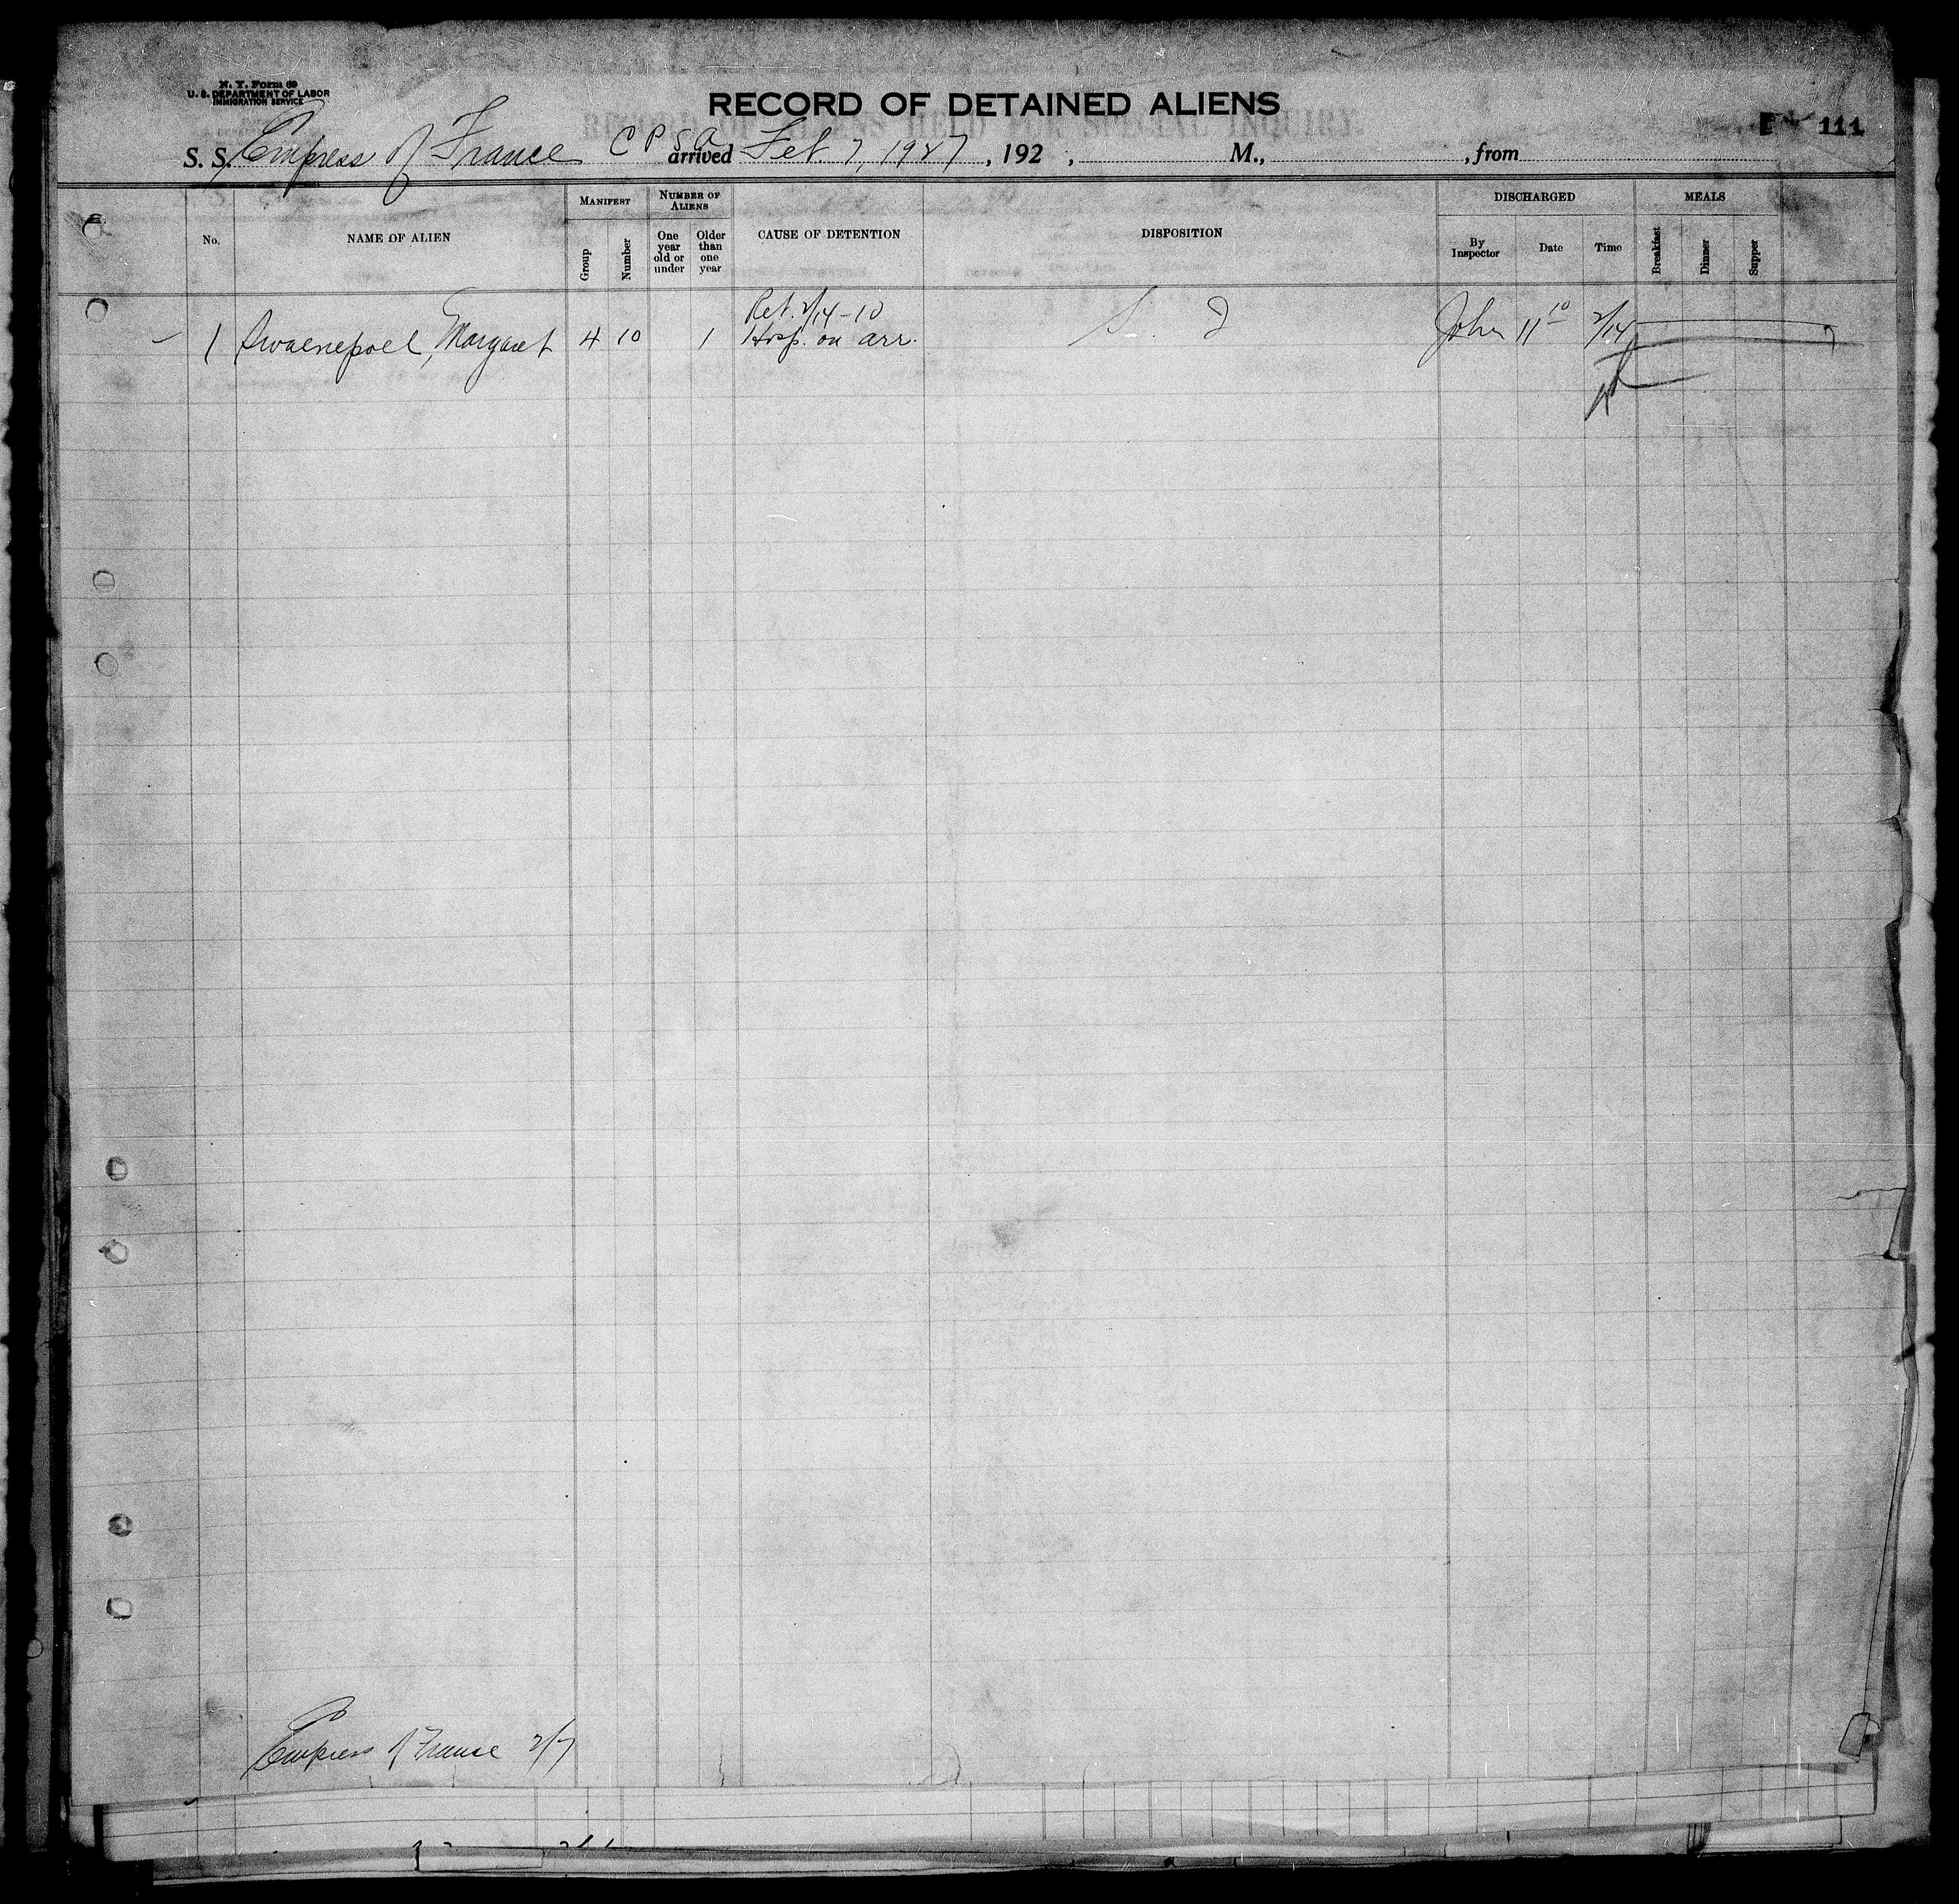 N. Y. Form 89
U. S. DEPARTMENT OF LABOR
IMMIGRATION SERVICE
RECORD OF DETAINED ALIENS
111
S. S. Empress of France C P S A arrived Feb. 7, 1927, 192 , M., , from
No.
NAME OF ALIEN
MANIFEST
Group
Number
NUMBER OF ALIENS
One year old or under
Older than one year
CAUSE OF DETENTION
DISPOSITION
DISCHARGED
By Inspector
Date
Time
MEALS
Breakfast
Dinner
Supper
Ret. 2/14-10
1 Swaenepoel, Margaret 4 10 1 Hosp. on arr. S. I John 11 10 2/14
Empress of France 2/7